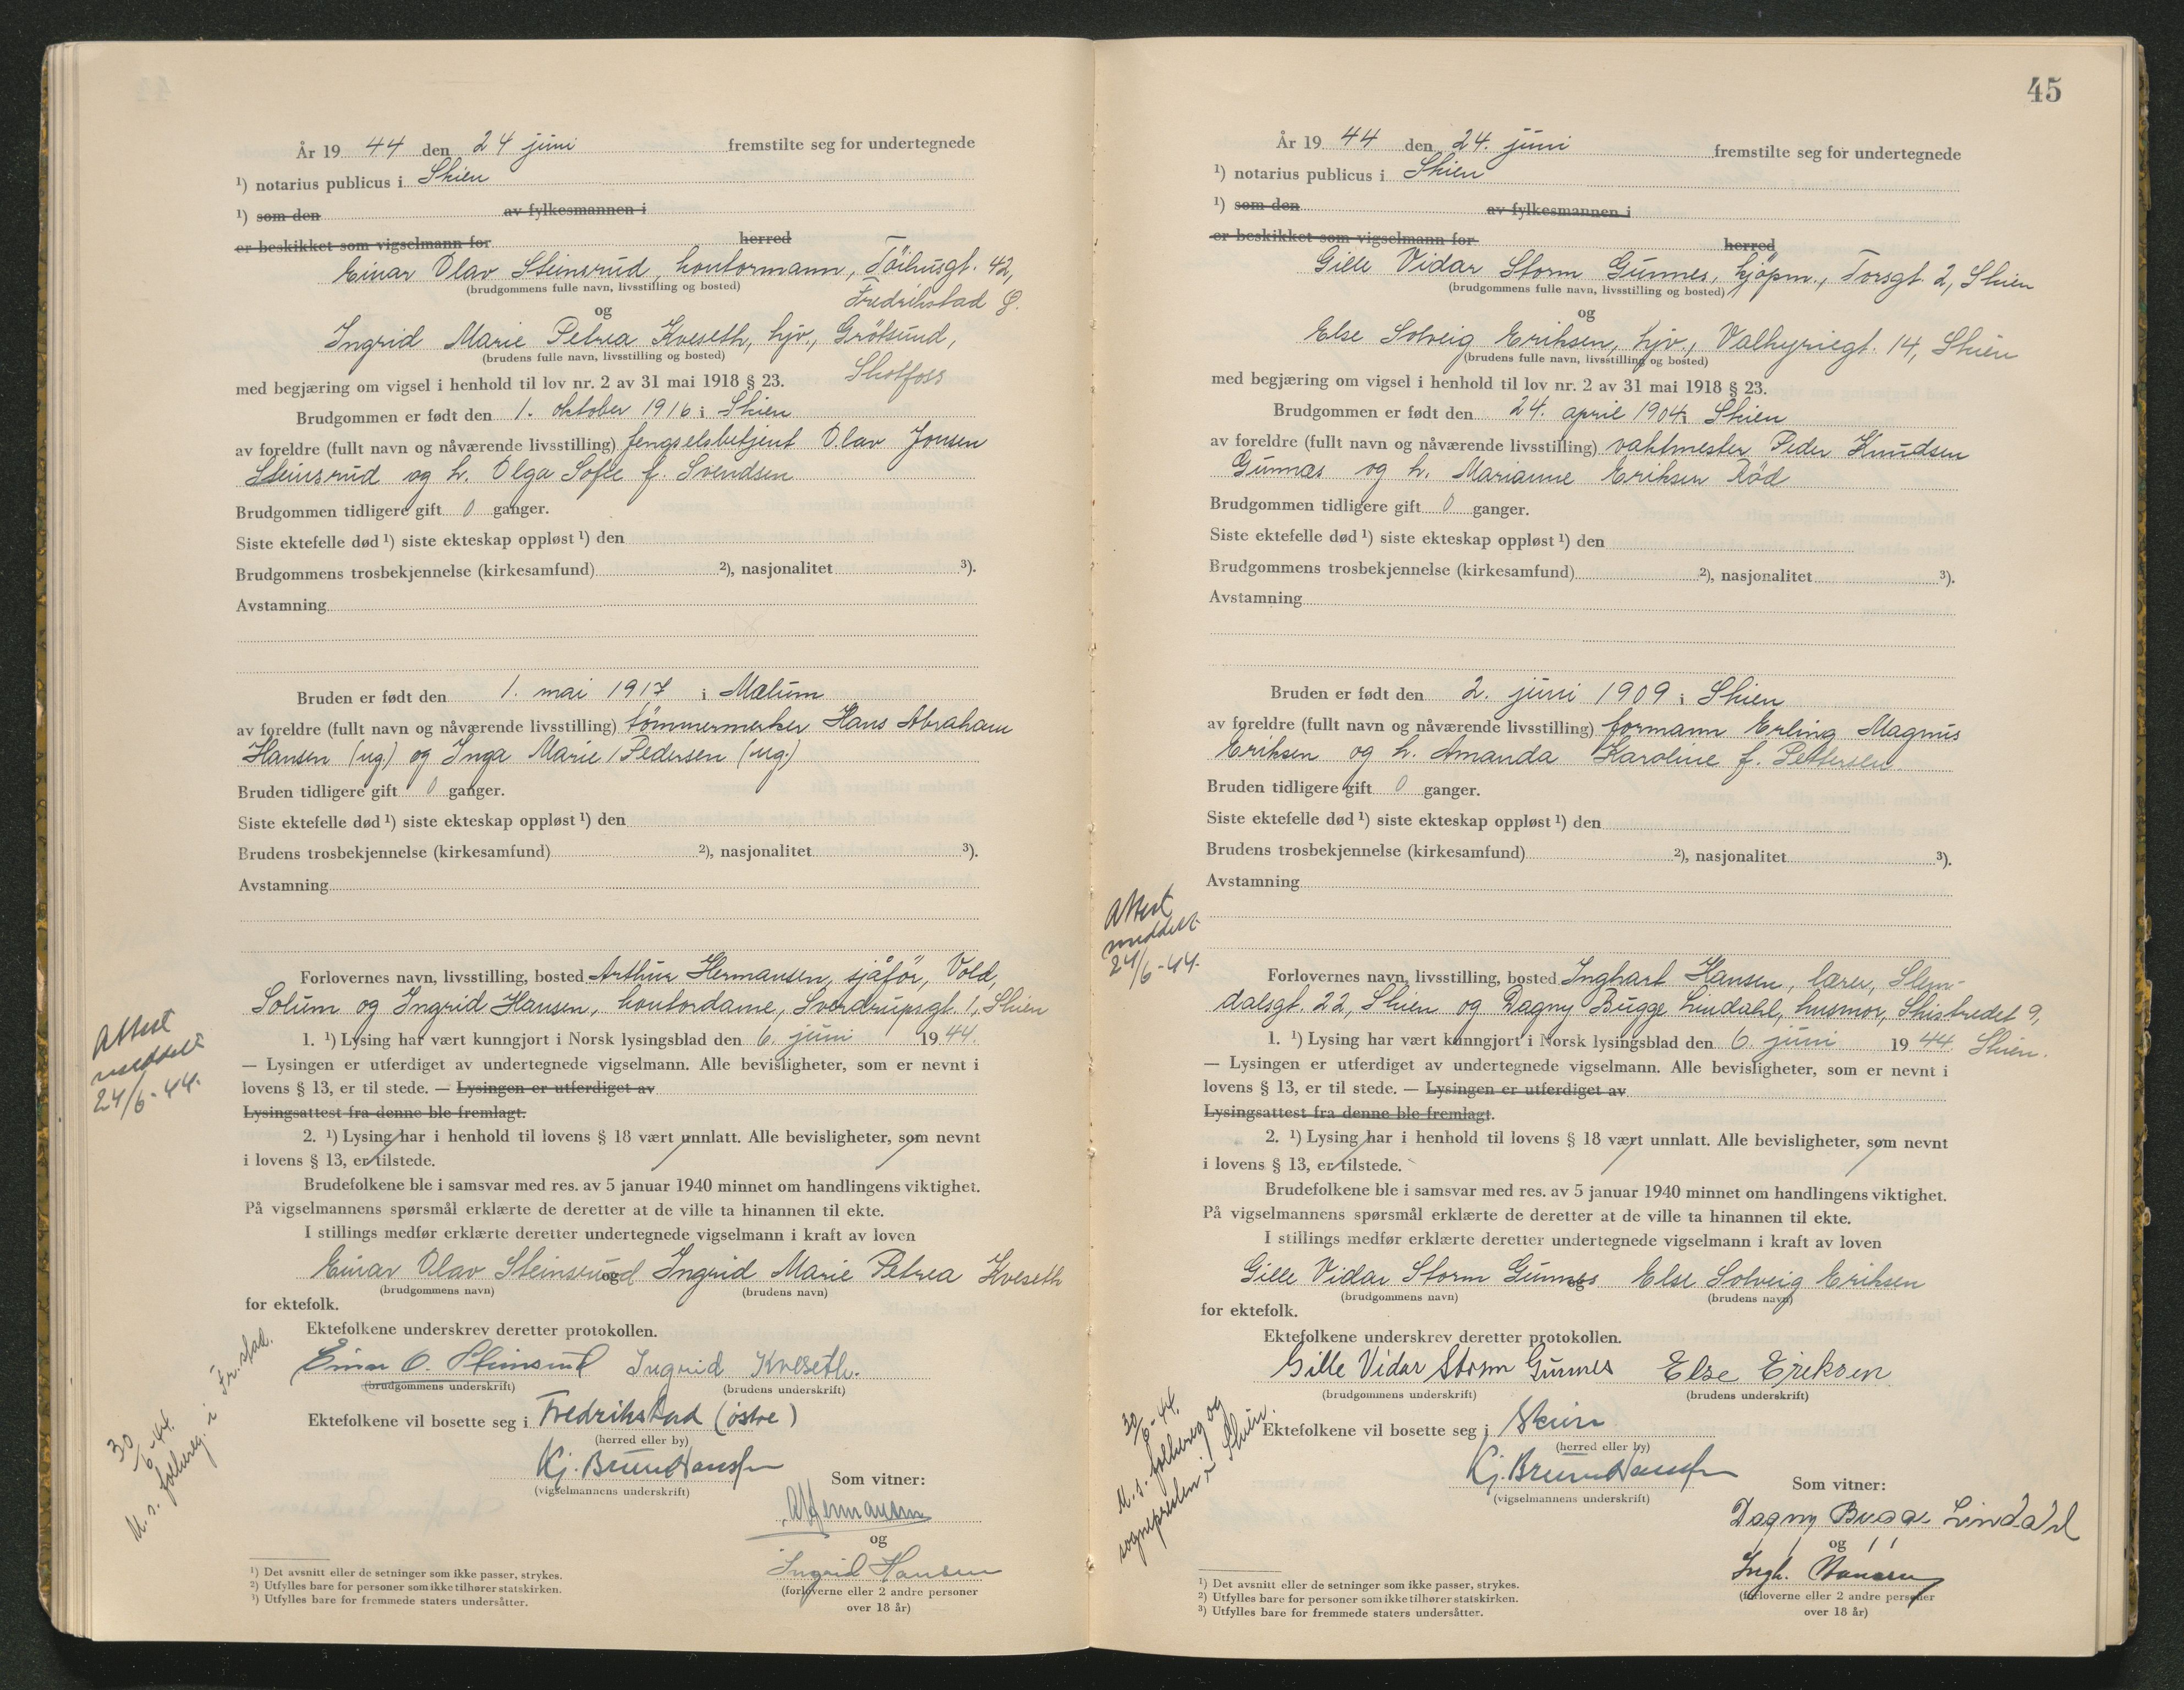 År 19 44 den 24 juni fremstilte seg for undertegnede
¹) notarius publicus i Skien
¹) som den av fylkesmannen i
er beskikket som vigselmann for herred
Einar Olav Steinsrud, kontormann, Töihusgt. 42,
(brudgommens fulle navn, livsstilling og bosted) Fredrikstad Ø.
og
Ingrid Marie Petrea Kveseth, hjv., Grötsund,
(brudens fulle navn, livsstilling og bosted)
med begjæring om vigsel i henhold til lov nr. 2 av 31 mai 1918 § 23. Skotfoss
Brudgommen er født den 1. oktober 1916 i Skien
av foreldre (fullt navn og nåværende livsstilling) fengselsbetjent Olav Jonsen
Steinsrud og h. Olga Sofie f. Svendsen
Brudgommen tidligere gift 0 ganger.
Siste ektefelle død ¹) siste ekteskap oppløst ¹) den
Brudgommens trosbekjennelse (kirkesamfund) ²), nasjonalitet ³).
Avstamning
Bruden er født den 1. mai 1917 i Mælum
av foreldre (fullt navn og nåværende livsstilling) tömmermerker Hans Abraham
Hansen (ug) og Inga Marie Pedersen (ug.)
Bruden tidligere gift 0 ganger.
Siste ektefelle død ¹) siste ekteskap oppløst ¹) den
Brudens trosbekjennelse (kirkesamfund) ²), nasjonalitet ³).
Avstamning
Forlovernes navn, livsstilling, bosted Arthur Hermansen, sjåför, Vold,
Solum og Ingrid Hansen, kontordame, Sverdrupsgt. 1, Skien
1. ¹) Lysing har vært kunngjort i Norsk lysingsblad den 6. juni 19 44.
— Lysingen er utferdiget av undertegnede vigselmann. Alle bevisligheter, som er nevnt i
lovens § 13, er til stede. — Lysingen er utferdiget av
Lysingsattest fra denne ble fremlagt.
Attest
meddelt
24/6-44.
2. ¹) Lysing har i henhold til lovens § 18 vært unnlatt. Alle bevisligheter, som nevnt
i lovens § 13, er tilstede.
Brudefolkene ble i samsvar med res. av 5 januar 1940 minnet om handlingens viktighet.
På vigselmannens spørsmål erklærte de deretter at de ville ta hinannen til ekte.
I stillings medfør erklærte deretter undertegnede vigselmann i kraft av loven
Einar Olav Steinsrud og Ingrid Marie Petrea Kveseth
(brudgommens navn) (brudens navn)
for ektefolk.
Ektefolkene underskrev deretter protokollen.
Einar O. Steinsrud Ingrid Kveseth.
(brudgommens underskrift) (brudens underskrift)
Ektefolkene vil bosette seg i Fredrikstad (østre)
(herred eller by)
30/6-44.
M. s. folkereg. i Fr.stad.
Kj. Bruun Hansen
(vigselmannens underskrift)
Som vitner:
A Hermansen
og
Ingrid Hansen
(forloverne eller 2 andre personer
over 18 år)
¹) Det avsnitt eller de setninger som ikke passer, strykes.
²) Utfylles bare for personer som ikke tilhører statskirken.
³) Utfylles bare for fremmede staters undersåtter.
45
År 19 44 den 24. juni fremstilte seg for undertegnede
¹) notarius publicus i Skien
¹) som den av fylkesmannen i
er beskikket som vigselmann for herred
Gille Vidar Storm Gunnes, kjöpm., Torsgt. 2, Skien
(brudgommens fulle navn, livsstilling og bosted)
og
Else Solveig Eriksen, hjv., Valkyriegt. 14, Skien
(brudens fulle navn, livsstilling og bosted)
med begjæring om vigsel i henhold til lov nr. 2 av 31 mai 1918 § 23.
Brudgommen er født den 24. april 1904 i Skien
av foreldre (fullt navn og nåværende livsstilling) vaktmester Peder Knudsen
Gunnes og h. Marianne Eriksen Röd
Brudgommen tidligere gift 0 ganger.
Siste ektefelle død ¹) siste ekteskap oppløst ¹) den
Brudgommens trosbekjennelse (kirkesamfund) ²), nasjonalitet ³).
Avstamning
Bruden er født den 2. juni 1909 i Skien
av foreldre (fullt navn og nåværende livsstilling) formann Erling Magnus
Eriksen og h. Amanda Karoline f. Pettersen
Bruden tidligere gift 0 ganger.
Siste ektefelle død ¹) siste ekteskap oppløst ¹) den
Brudens trosbekjennelse (kirkesamfund) ²), nasjonalitet ³).
Avstamning
Attest
meddelt
24/6-44.
Forlovernes navn, livsstilling, bosted Inghart Hansen, lærer, Slem-
dalsgt. 22, Skien og Dagny Bugge Lindahl, husmor, Skistredet 9,
1. ¹) Lysing har vært kunngjort i Norsk lysingsblad den 6. juni 19 44. Skien.
— Lysingen er utferdiget av undertegnede vigselmann. Alle bevisligheter, som er nevnt i
lovens § 13, er til stede. — Lysingen er utferdiget av
Lysingsattest fra denne ble fremlagt.
2. ¹) Lysing har i henhold til lovens § 18 vært unnlatt. Alle bevisligheter, som nevnt
i lovens § 13, er tilstede.
Brudefolkene ble i samsvar med res. av 5 januar 1940 minnet om handlingens viktighet.
På vigselmannens spørsmål erklærte de deretter at de ville ta hinannen til ekte.
I stillings medfør erklærte deretter undertegnede vigselmann i kraft av loven
Gille Vidar Storm Gunnes og Else Solveig Eriksen
(brudgommens navn) (brudens navn)
for ektefolk.
Ektefolkene underskrev deretter protokollen.
Gille Vidar Storm Gunnes Else Eriksen
(brudgommens underskrift) (brudens underskrift)
Ektefolkene vil bosette seg i Skien
(herred eller by)
30/6-44.
M. s. folkereg og
sognepresten i Skien.
Kj. Bruun Hansen
(vigselmannens underskrift)
Som vitner:
Dagny Bugge Lindahl
og
Ingh. Hansen
(forloverne eller 2 andre personer
over 18 år)
¹) Det avsnitt eller de setninger som ikke passer, strykes.
²) Utfylles bare for personer som ikke tilhører statskirken.
³) Utfylles bare for fremmede staters undersåtter.